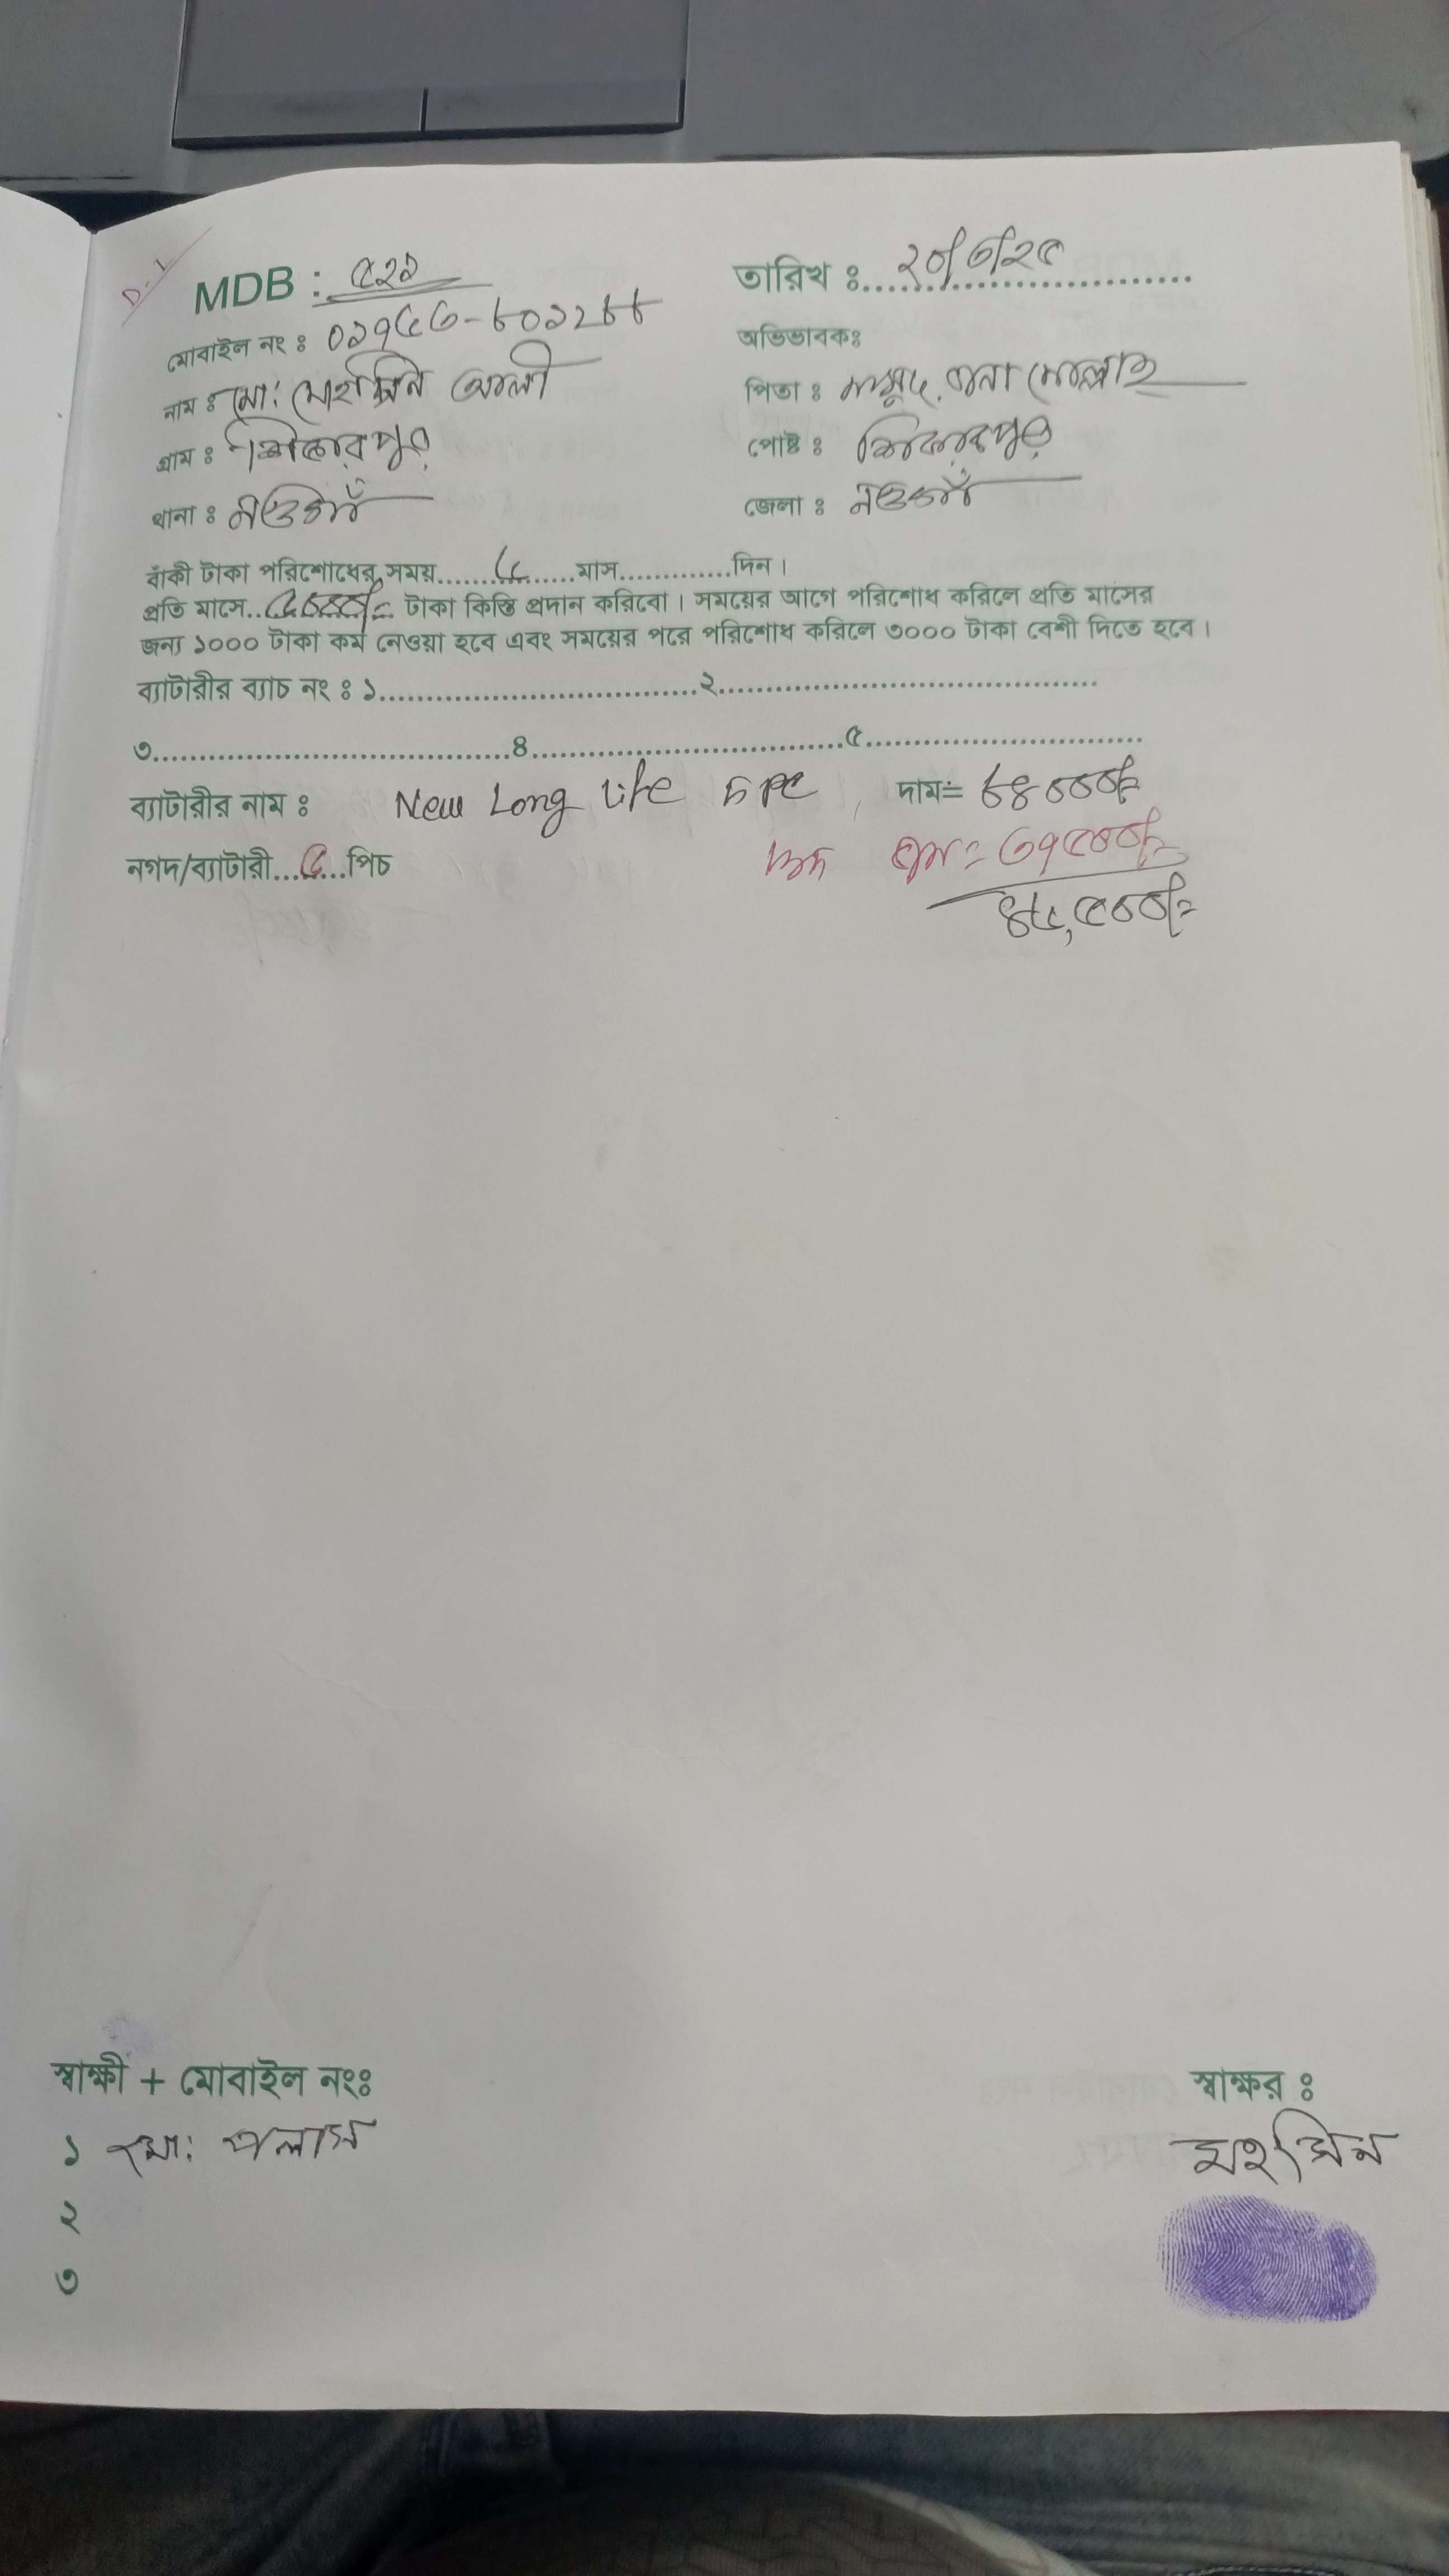 D-1
MDB : ৫২১ তারিখ ঃ ২০/৩/২৫
মোবাইল নং ঃ ০১৭৫৩-৮০১২৮৮ অভিভাবকঃ
নাম ঃ মো: মোহসিন আলী পিতা ঃ মোল্লাহ
গ্রাম ঃ শিকারপুর পোষ্ট ঃ শিকারপুর
থানা ঃ নওগাঁ জেলা ঃ নওগাঁ
বাঁকী টাকা পরিশোধের সময়.......৫.......মাস.............দিন।
প্রতি মাসে..৫০০০/=.. টাকা কিস্তি প্রদান করিবো। সময়ের আগে পরিশোধ করিলে প্রতি মাসের
জন্য ১০০০ টাকা কম নেওয়া হবে এবং সময়ের পরে পরিশোধ করিলে ৩০০০ টাকা বেশী দিতে হবে।
ব্যাটারীর ব্যাচ নং ঃ ১....................................২..........................................
৩........................................৪...................................৫...............................
ব্যাটারীর নাম ঃ New Long Life ৫ Pc দাম= ৮৪০০০/=
নগদ/ব্যাটারী...৫...পিচ জমা= ৩৭৫০০/=
৪৬,৫০০/=
স্বাক্ষী + মোবাইল নংঃ স্বাক্ষর ঃ
১ মো: পলাস মহসিন
২
৩